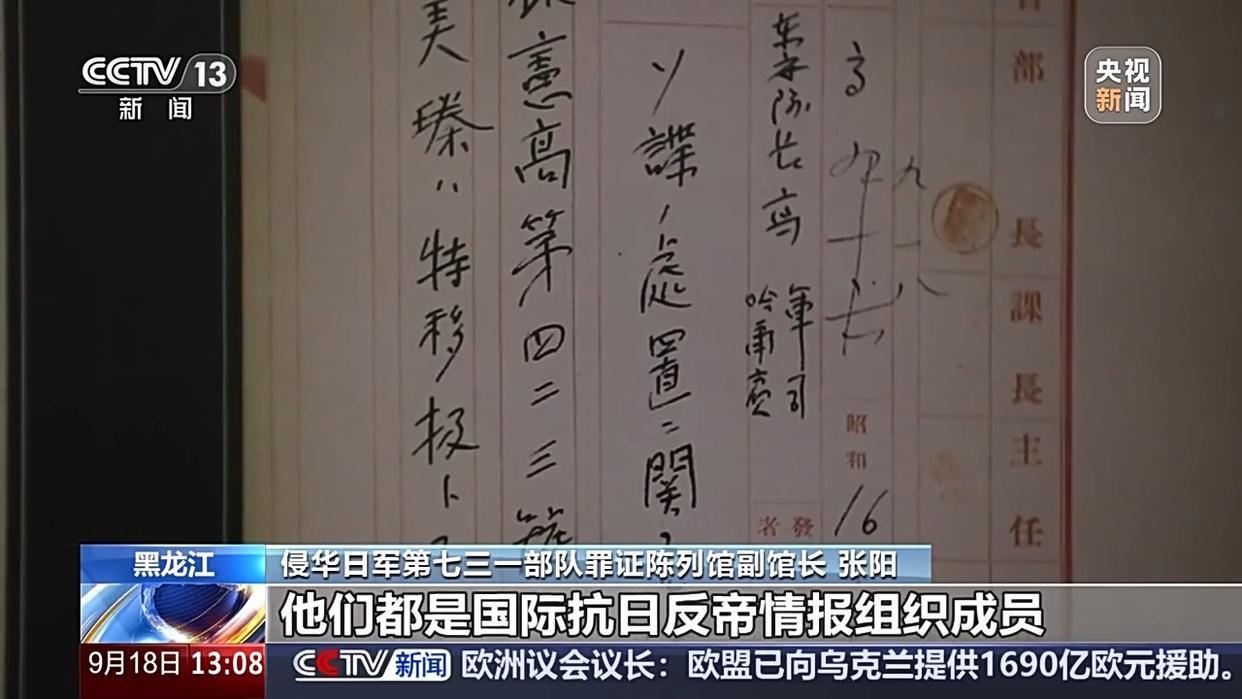 CCTV 13
新闻
央视
新闻
部長
課長
主任
高
東安隊長高
軍司
哈爾賓
昭和
16
發者
ソ諜ノ處置ニ関
憲高第四二三
美臻ハ特移扱ト
黑龙江
侵华日军第七三一部队罪证陈列馆副馆长 张阳
他们都是国际抗日反帝情报组织成员
9月18日 13:08
CCTV 新闻 欧洲议会议长：欧盟已向乌克兰提供1690亿欧元援助。